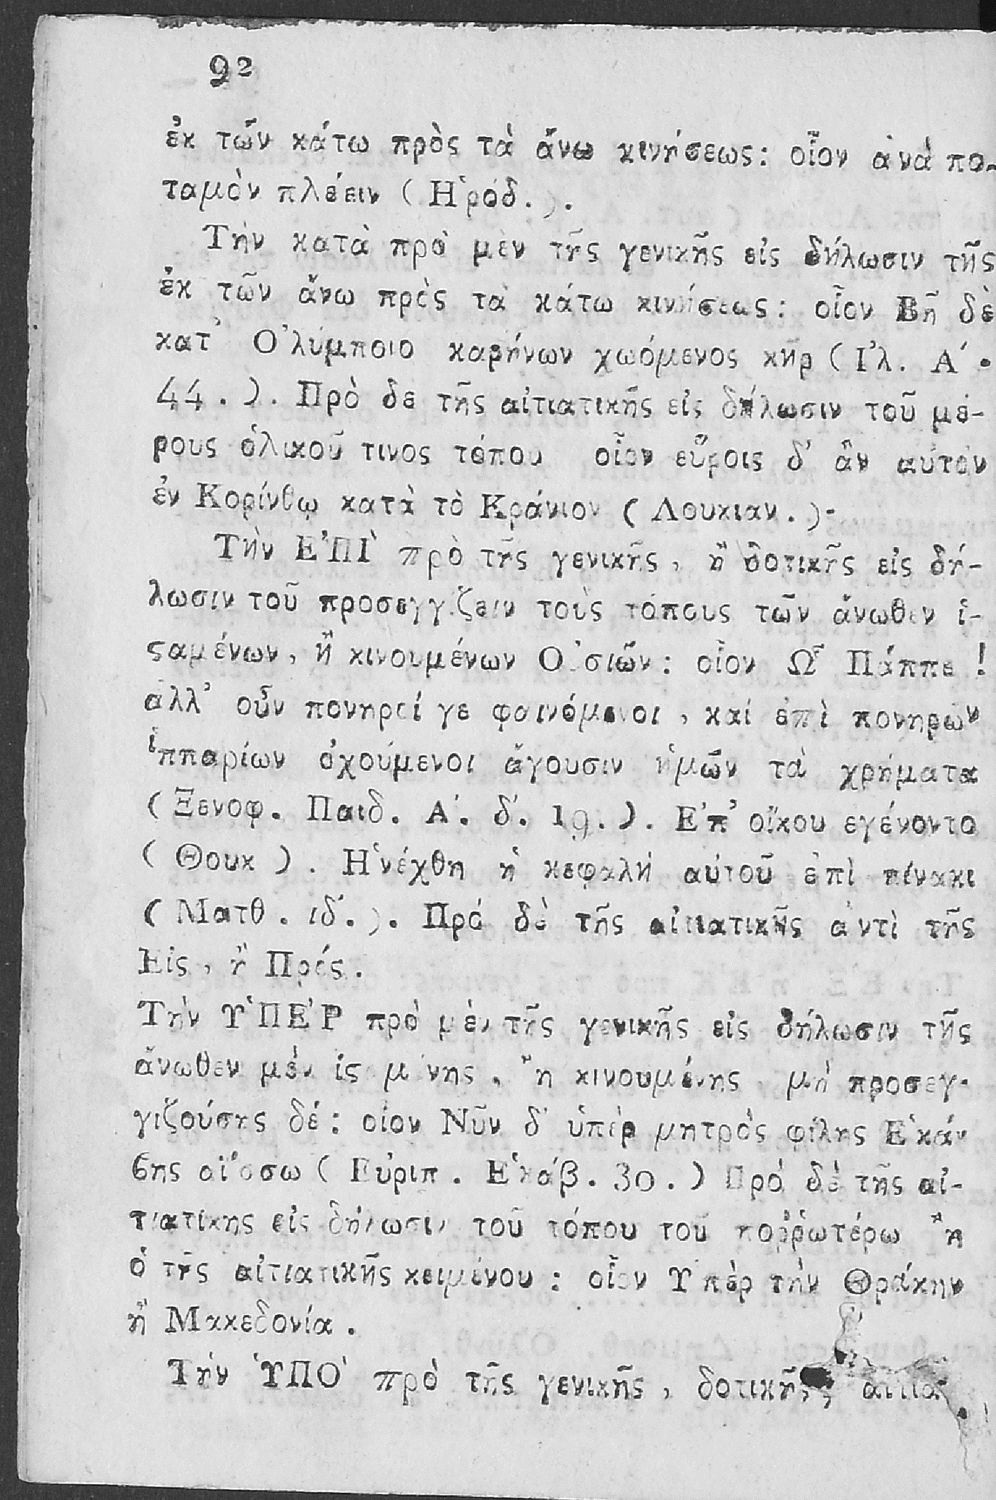 92
ἐκ τῶν κάτω πρὸς τὰ ἄνω κινήσεως: οἷον ἀνὰ πο-
ταμὸν πλέειν (Ἡρόδ.).
Τὴν κατὰ πρὸ μὲν τῆς γενικῆς εἰς δήλωσιν τῆς
ἐκ τῶν ἄνω πρὸς τὰ κάτω κινήσεως: οἷον Βῆ δὲ
κατ' Ὀλύμποιο καρήνων χωόμενος κῆρ (Ἰλ. Α΄.
44.). Πρὸ δε τῆς αἰτιατικῆς εἰς δήλωσιν τοῦ μέ-
ρους ὁλικοῦ τινος τόπου οἷον εὕροις δ' ἂν αὐτὸν
ἐν Κορίνθῳ κατὰ τὸ Κράνιον (Λουκιαν.).
Τὴν ἘΠῚ πρὸ τῆς γενικῆς, ἢ δοτικῆς εἰς δή-
λωσιν τοῦ προσεγγίζειν τοὺς τόπους τῶν ἄνωθεν ἱ-
ςαμένων, ἢ κινουμένων Οὐσιῶν: οἷον Ὦ Πάππε!
ἀλλ' οὖν πονηροί γε φαινόμενοι, καί ἐπὶ πονηρῶν
ἱππαρίων ὀχούμενοι ἄγουσιν ἡμῶν τὰ χρήματα
(Ξενοφ. Παιδ. Α΄. δ΄. 19.). Ἐπ' οἴκου εγένοντο
(Θουκ). Ἠνέχθη ἡ κεφαλὴ αὐτοῦ ἐπὶ πίνακι
(Ματθ. ιδ΄.). Πρὸ δὲ τῆς αἰτιατικῆς ἀντὶ τῆς
Εἰς, ἢ Πρός.
Τὴν ὙΠῈΡ πρὸ μὲν τῆς γενικῆς εἰς δήλωσιν τῆς
ἄνωθεν μὲν ἱςαμένης, ἢ κινουμένης, μὴ προσεγ-
γιζούσης δέ: οἷον Νῦν δ' ὑπὲρ μητρὸς φίλης Ἑκά-
βης ἀΐσσω (Εὐριπ. Ἑκάβ. 30.) Πρὸ δὲ τῆς αἰ-
τιατίκης εἰς δήλωσιν τοῦ τόπου τοῦ ποῤῥωτέρω ἢ
ὁ τῆς αἰτιατικῆς κειμένου: οἷον Ὑπὲρ τὴν Θράκην
ἢ Μακεδονία.
Τὴν ὙΠῸ πρὸ τῆς γενικῆς, δοτικῆς, αἰτια-